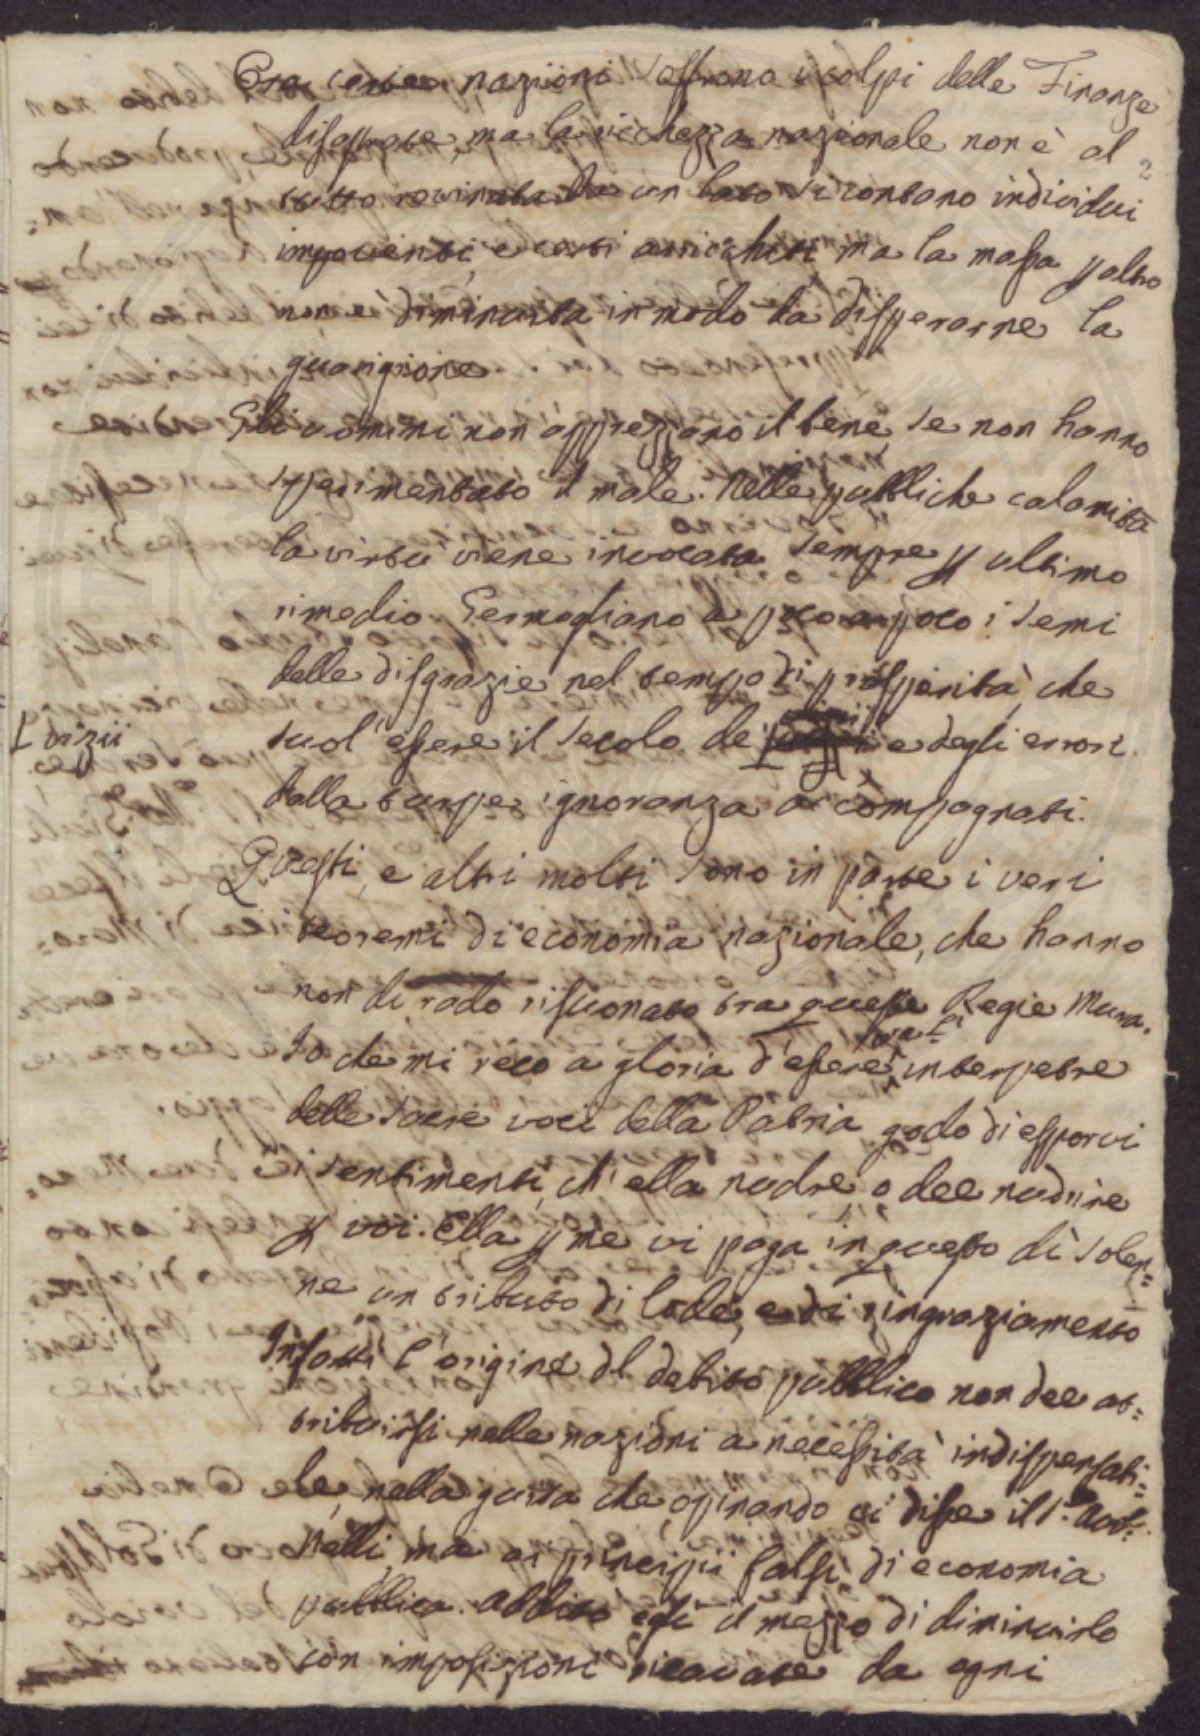 Ora certe nazioni soffrono i colpi delle Finanze
disastrose, ma la ricchezza nazionale non è al
2
tutto rovinata da un lato si contano individui
impoveriti, e certi arricchiti ma la massa p altro
non è diminuita in modo da disperarne la
guarigione
Gli uomini non apprezzano il bene, se non hanno
sperimentato il male. Nelle pubbliche calamità
la virtù viene invocata sempre p ultimo
rimedio. Germogliano a poco a poco i semi
delle disgrazie nel tempo di prosperità, che
I vizii
suol' essere il secolo de' e degli errori
dalla turpe ignoranza accompagnati.
Questi, e altri molti sono in parte i veri
teoremi di economia nazionale, che hanno
non di rado risuonato tra queste Regie Mura.
Io che mi reco a gloria d'essere interpetre
delle sacre voci della Patria godo di esporvi
i sentimenti, ch' ella nudre o dee nudrire
p voi. Ella p me vi paga in questo dì solen=
ne un tributo di lode, e di ringraziamento
Infatti l'origine dl debito pubblico non dee at=
tribuirsi nelle nazioni a necessità indispensabi=
le, nella guisa che opinando ci disse il S.r
ma a' principii falsi di economia
pubblica. Addita egli il mezzo di diminuirlo
con imposizioni ricavate da ogni